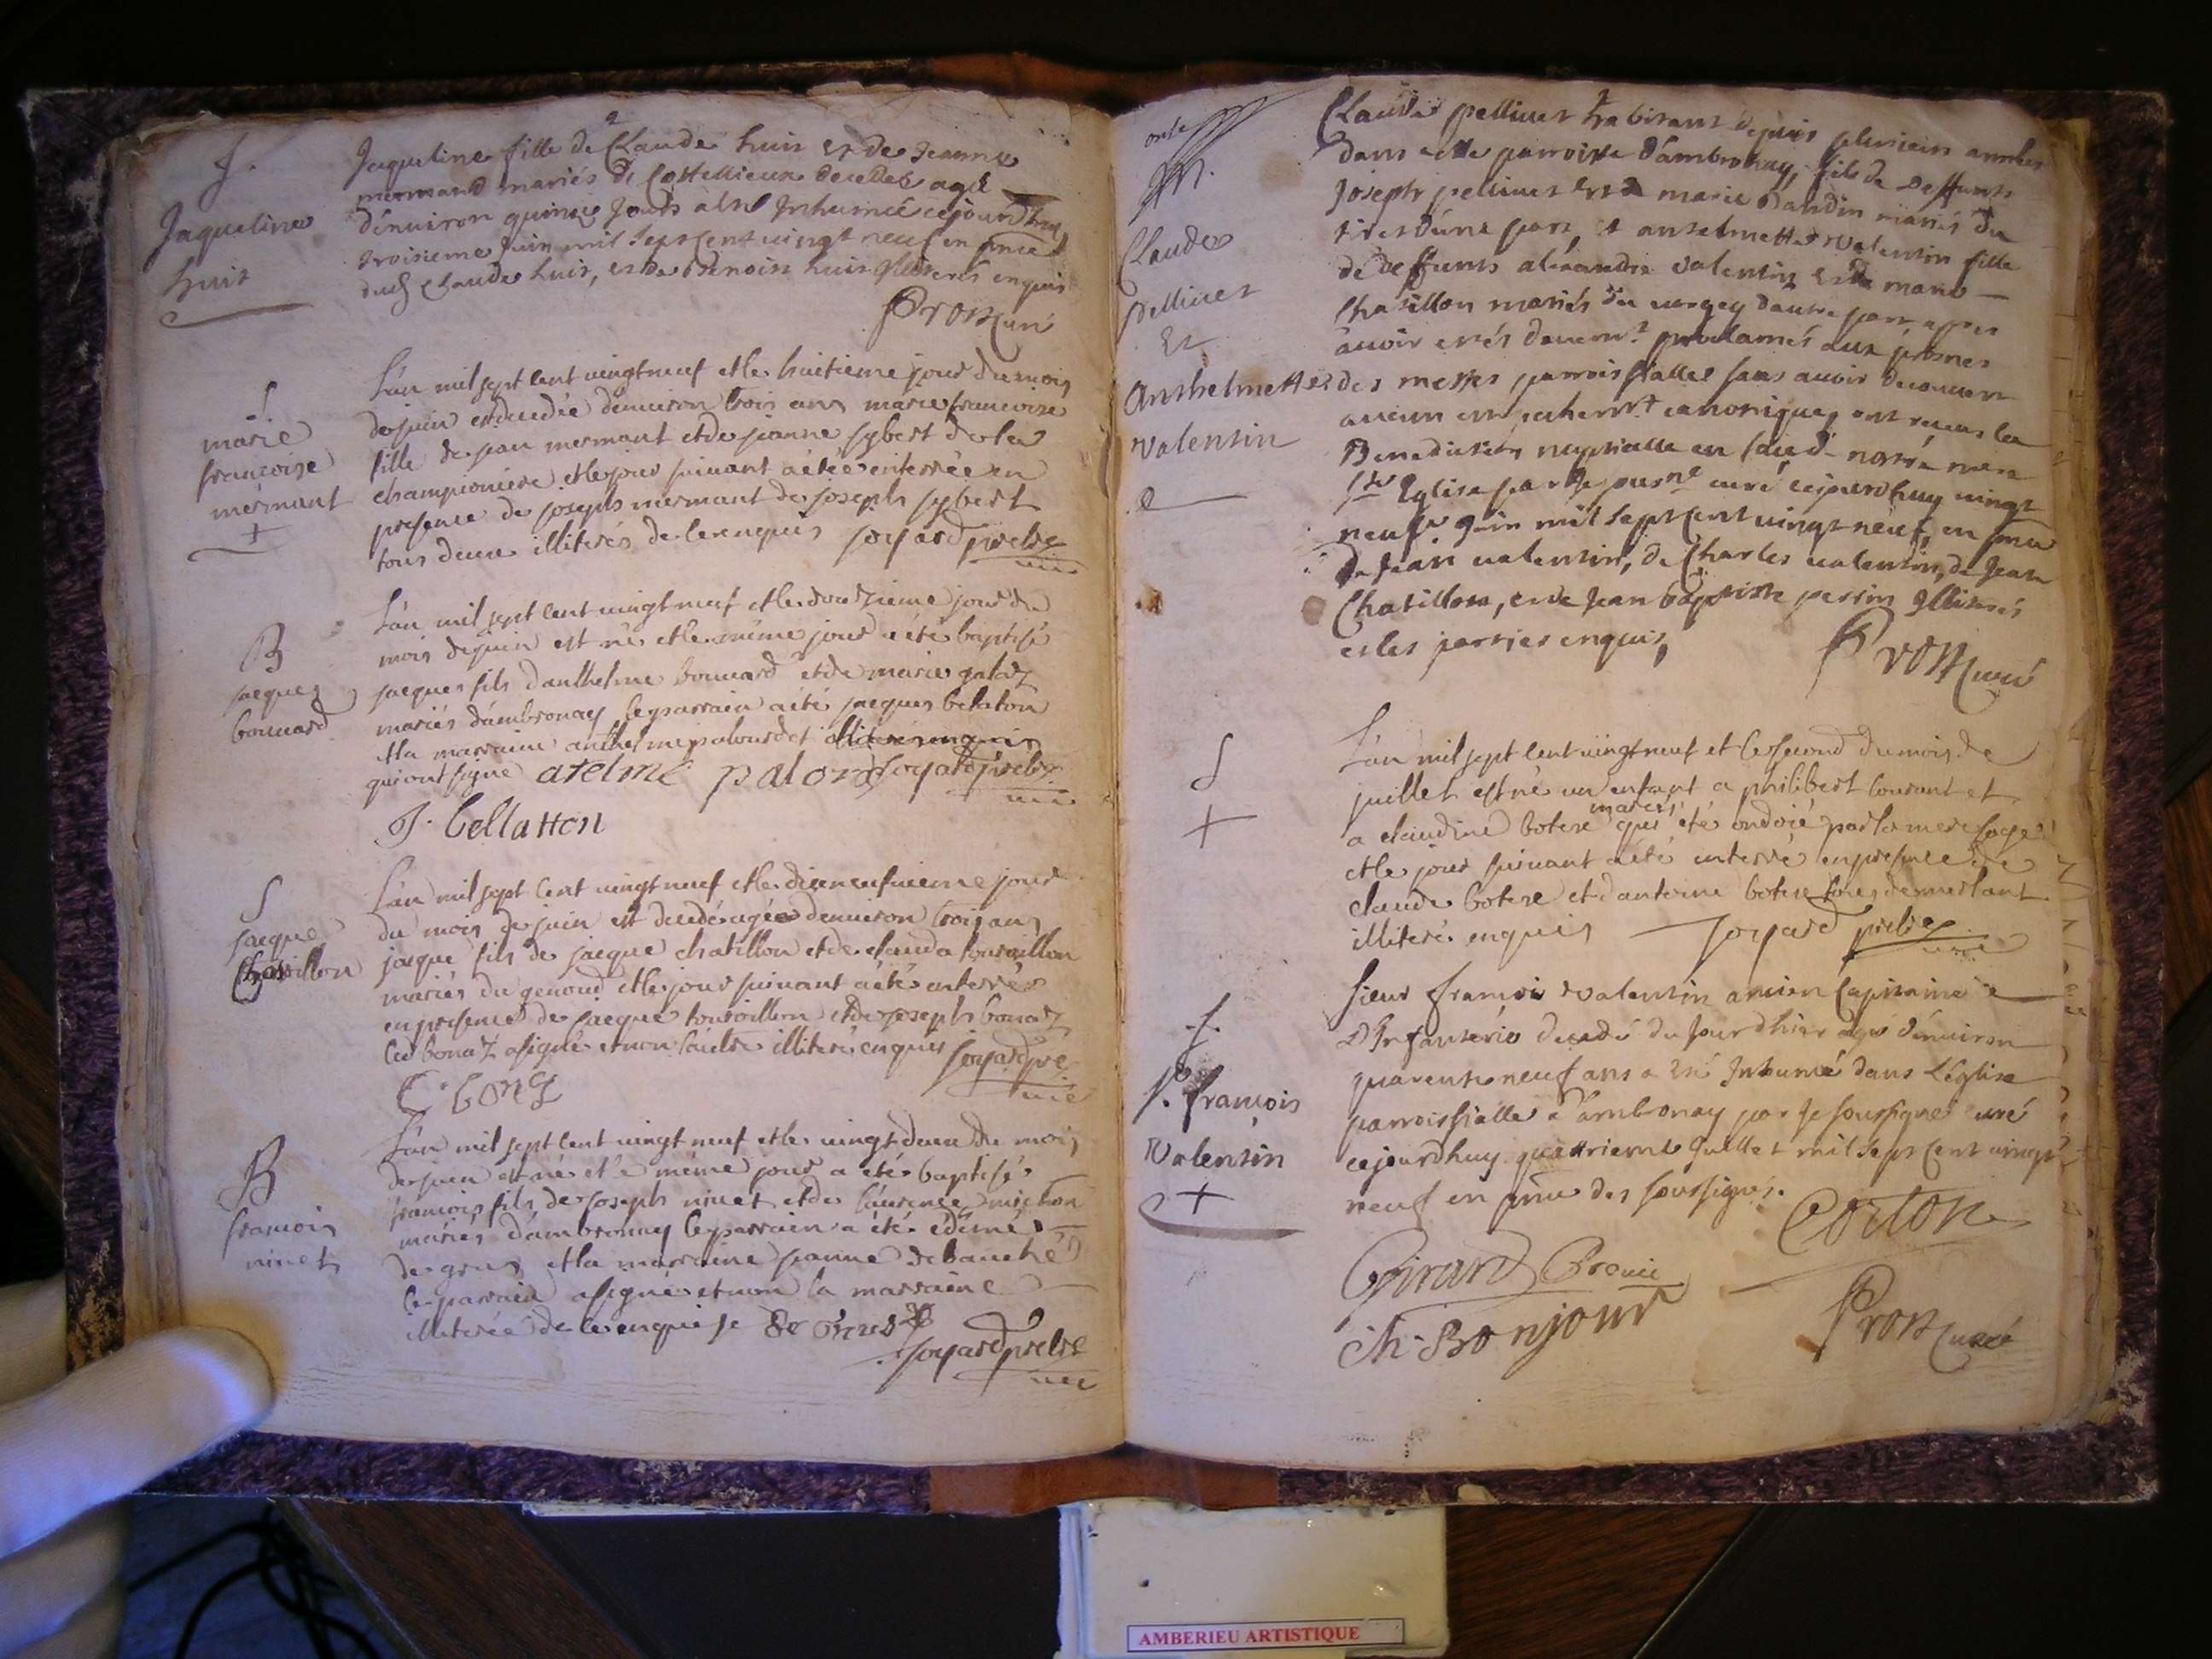 S.
Jaqueline
huit
Jaqueline fille de Claude huit et de Jeanne
mermand mariés de Cottellieux decedée agée
d'environ quinze Jours a été Inhumée ce jourdhuy
troisieme Juin mil sept cent vingt neuf en pnce
dud Claude huit, et de Benoist huit Illiterés enquis
Prost curé
S.
marie
francoise
mermant
+
L'an mil sept cent vingt neuf et le huitieme jour du mois
de juin est decedée d'environ trois ans marie francoise
fille de jean mermant et de jeanne sybert de la
championiere et le jour suivant a étée enterrée en
presence de joseph mermant de joseph sybert
tous deux illiterés de ce enquis joyard prebre
vic
B
jacques
bouuard
L'an mil sept cent vingt neuf et le douzieme jour du
mois de juin est né et le même jour a été baptisé
jacques fils d'anthelme bouuard et de marie galaz
mariés d'ambronay le parrain a été jacques belaton
et la marraine anthelme palourdet illiterés enquis
qui ont signé atelme palord joyard prebre
vic
J. bellatton
S
jacque
Chatillon
L'an mil sept cent vingt neuf et le dixneufvieme jour
du mois de juin est decedé agé d'environ trois ans
jacque fils de jacque chatillon et de clauda touraillon
mariés du genoud et le jour suivant a été enterré
en presence de jacque touroillon et de joseph bonaz
led bonaz a signé et non l'autre illiteré enquis joyard pre
vic
B
francois
ninet
L'an mil sept cent vingt neuf et le vingt deux du mois
de juin est né et le même jour a été baptisé
francois fils de joseph ninet et de laurence michon
mariés d'ambronay le parrain a été édmé
de grus et la marraine jeanne debauché
le parrain a signé et non la marraine
illiterée de ce enquise
joyard prebre
vic
M.
Claude
pellivet
Et
Anthelmette
valentin
Claude pellivet habitant depuis plusieurs années
dans cette parroisse d'ambronay, fils de deffunts
Joseph pellivet et de marie dandin mariés du
d'une part et anselmette valentin fille
de deffunts aléxandre valentin et de marie
Chatillon mariés du vergey dautre part apres
avoir etés deuemt proclamés aux prosnes
des messes parroissialles sans avoir decouvert
aucun empechemt canonique, ont receus la
Benediction nuptialle en face de nostre mere
ste Eglise par Je pnt curé cejourdhuy vingt
neuf Juin mil sept cent vingt neuf, en pnce
de Jean valentin, de Charles valentin, de Jean
Chatillon, et de Jean baptiste perrin Illiterés
et les parties enquis,
Prost curé
S
+
L'an mil sept cent vingt neuf et le second du mois de
juillet est né un enfant a philibert courant et
a claudine botere mariés qui a été ondoié par la mere sage
et le jour suivant a été enterré en presence de
claude botere et d'antoine botere tous demeslant
illiteré enquis joyard prebre
vic
S.
Sr. francois
Valentin
+
Sieur francois valentin ancien Capitaine
D'Infanterie decedé du Jour d'hier agé d'environ
quarente neuf ans a été Inhumé dans L'église
parroissialle d'ambronay par Je soussigné curé
cejourdhuy quattrieme Juillet mil sept cent vingt
neuf en pnce des soussignés.
Corton
Girard
Ch. Bonjour
Prost curé
AMBERIEU ARTISTIQUE